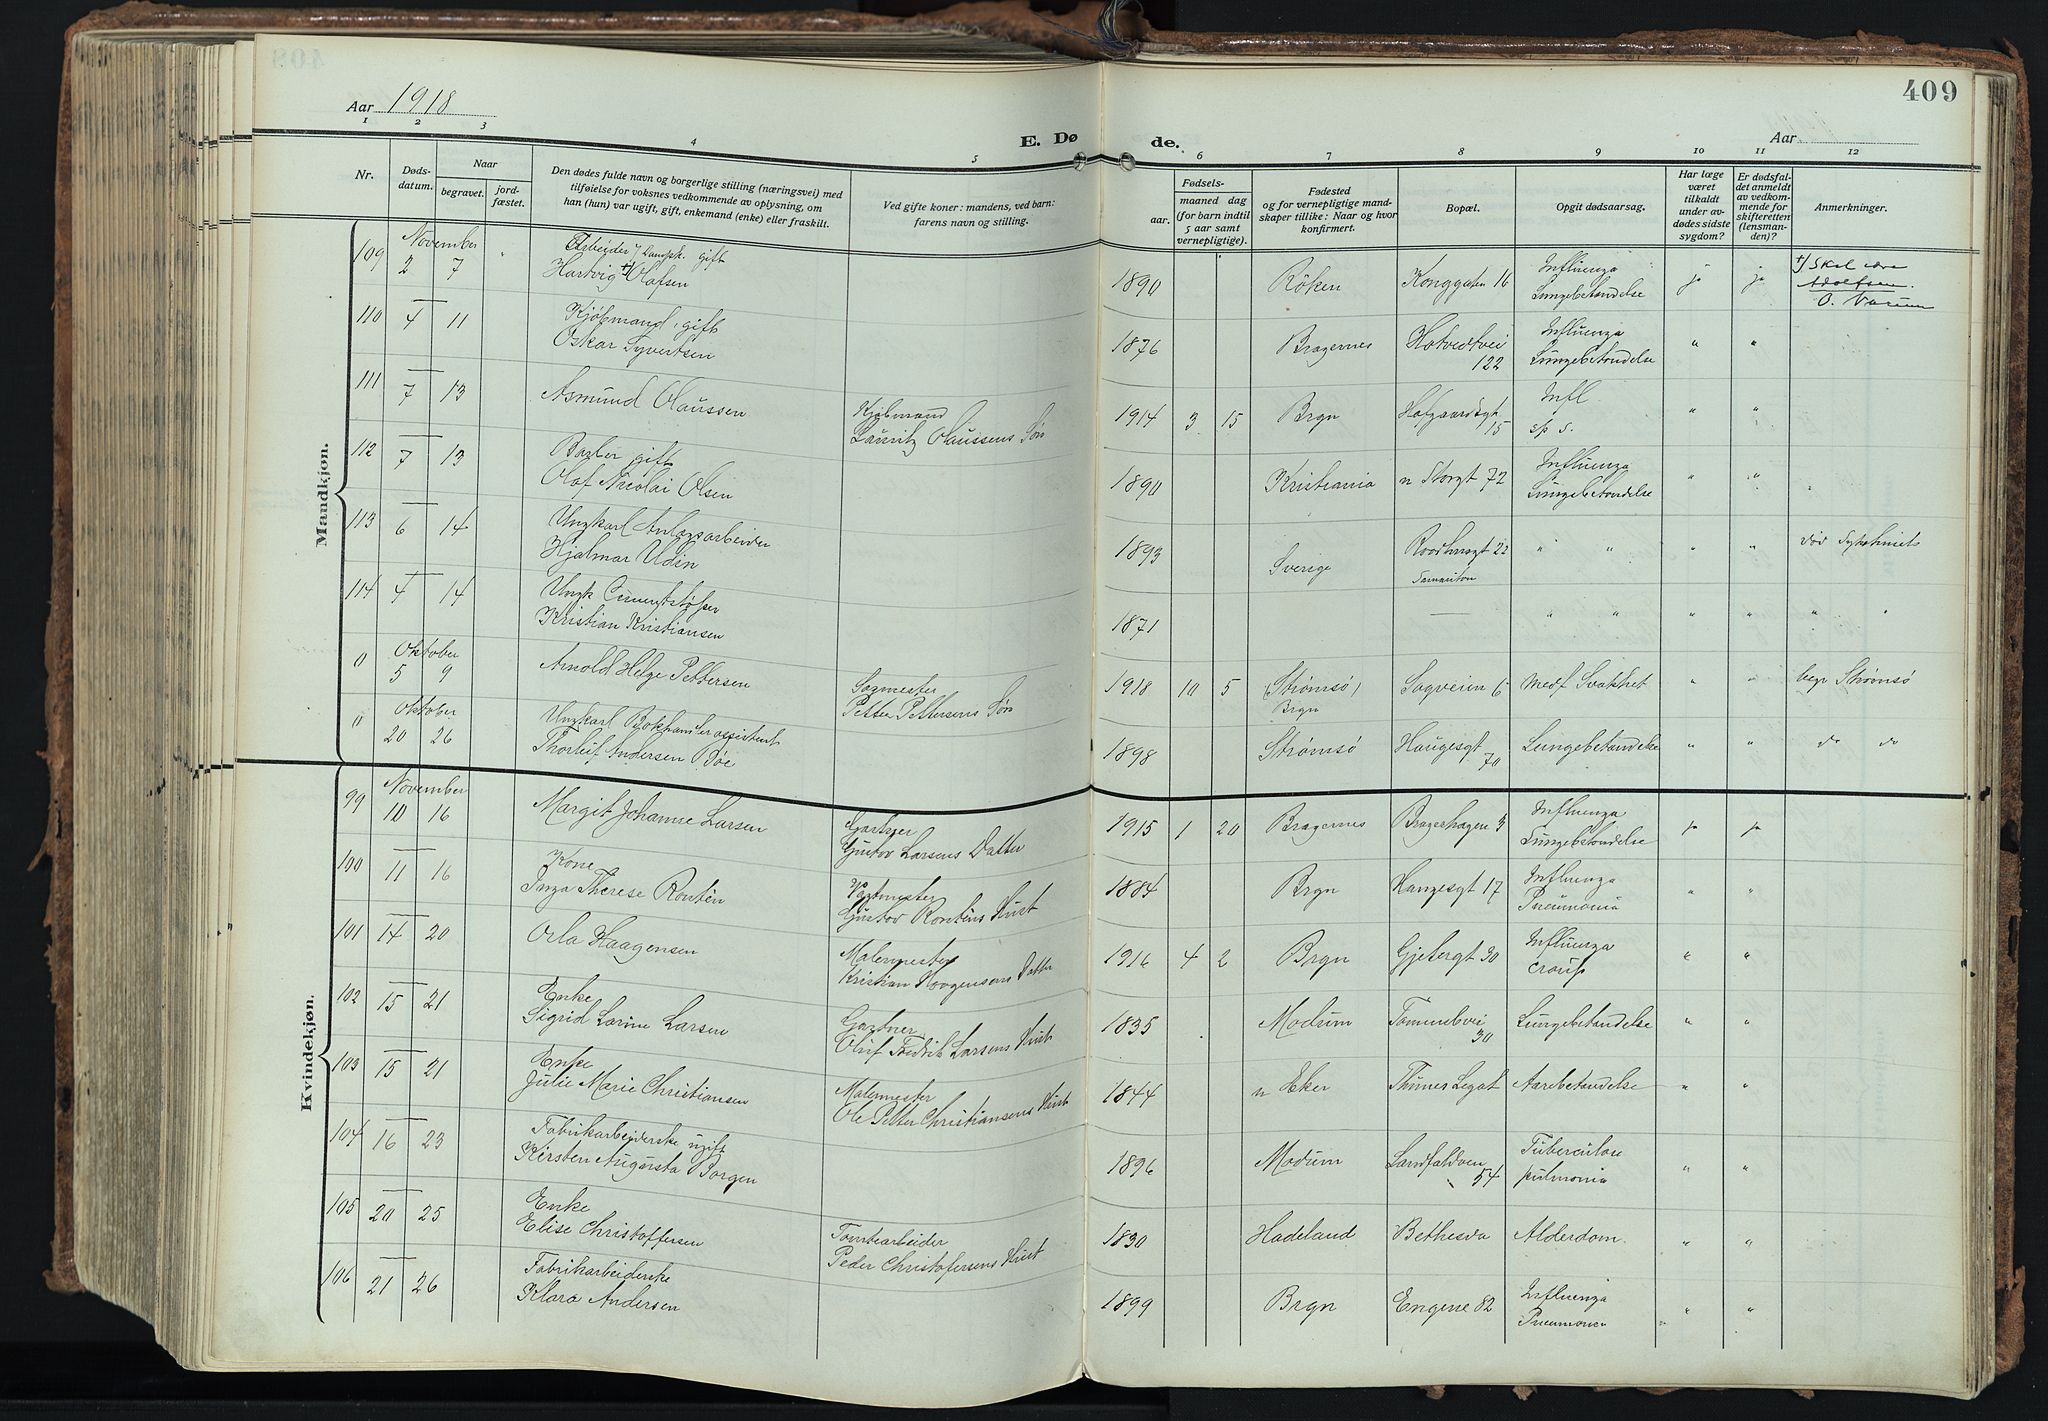 409
Aar 1918
E. Dø de.
Aar
1 2 3 4 5 6 7 8 9 10 11 12
Nr.
Døds-
datum.
Naar
begravet.
jord-
fæstet.
Den dødes fulde navn og borgerlige stilling (næringsvei) med
tilføielse for voksnes vedkommende av oplysning, om
han (hun) var ugift, gift, enkemand (enke) eller fraskilt.
Ved gifte koner: mandens, ved barn:
farens navn og stilling.
Fødsels-
aar.
maaned dag
(for barn indtil
5 aar samt
vernepligtige).
Fødested
og for vernepligtige mand-
skaper tillike: Naar og hvor
konfirmert.
Bopæl.
Opgit dødsaarsag.
Har læge
været
tilkaldt
under av-
dødes sidste
sygdom?
Er dødsfal-
det anmeldt
av vedkom-
mende for
skifteretten
(lensman-
den)?
Anmerkninger.
Mandkjøn.
November
109 2 7 " Arbeider gift
Hartvig +) Olafsen 1890 Röken Konggaten 16 Influenza
Lungebetændelse ja ja +) Skal være
Adolfsen.
110 4 11 Kjøbmand, gift
Oskar Syvertsen 1876 Bragernes Hotvedtvei
122 Influenza
Lungebetændelse " "
111 7 13 Asmund Olaussen Kjøbmand
Lauritz Olaussens Søn 1914 3 15 Brgn Hofgaardsgt
15 Infl.
sp s. " "
112 7 13 gift
Olaf Nicolai Olsen 1890 Kristiania n Storgt 72 Influenza
Lungebetændelse " "
113 6 14 Ungkarl Anlægsarbeider
Hjalmar Udin 1893 Sverige Raadhusgt 22
Samariten " " " " død
114 4 14 Ungk Cementstøper
Kristian Kristiansen 1871 — " " " " " "
Oktober
0 5 9 Arnold Helge Pettersen Sagmester
Petter Pettersens Søn 1918 10 5 (Strømsø)
Brgn Sagveien 6 Medf Svakhet " " begr Strømsø
Oktober
0 20 26 Ungkarl Bokhandlerassistent
Thorleif Andersen Bøe 1898 Strømsø Haugesgt
70 Lungebetændelse " " do do
Kvindekjøn.
November
99 10 16 Margit Johanne Larsen Gartner
Gustav Larsens Datter 1915 1 20 Bragernes Bragerhagen 3 Influenza
Lungebetændelse ja ja
100 11 16 Kone
Inga Therese Rontén Vagtmester
Gustav Rontèns Hust 1884 Brgn Haugesgt 17 Influenza
Pneumonia " "
101 14 20 Orla Haagensen Malermester
Kristian Haagensens Datter 1916 4 2 Brgn Gjetergt 30 Influenza
croup " "
102 15 21 Enke
Sigrid Larine Larsen Gartner
Oluf Fredrik Larsens Hust 1835 Modum Tommebvei
30 Lungebetændelse " "
103 15 21 Enke
Julie Marie Christiansen Malermester
Ole Petter Christiansens Hust 1844 n Eker Thunes Legat Aarebetændelse " "
104 16 23 Fabrikarbeiderske ugift
Kirsten Augusta Borgen 1896 Modum Landfaldøen
54 Tuberculose
pulmonia " "
105 20 25 Enke
Elise Christoffersen Tomtearbeider
Peder Christofersens Hust 1830 Hadeland Bethesda Alderdom. " "
106 21 26 Fabrikarbeiderske
Klara Andersen 1899 Brgn Engene 82 Influenza
Pneumonia " "